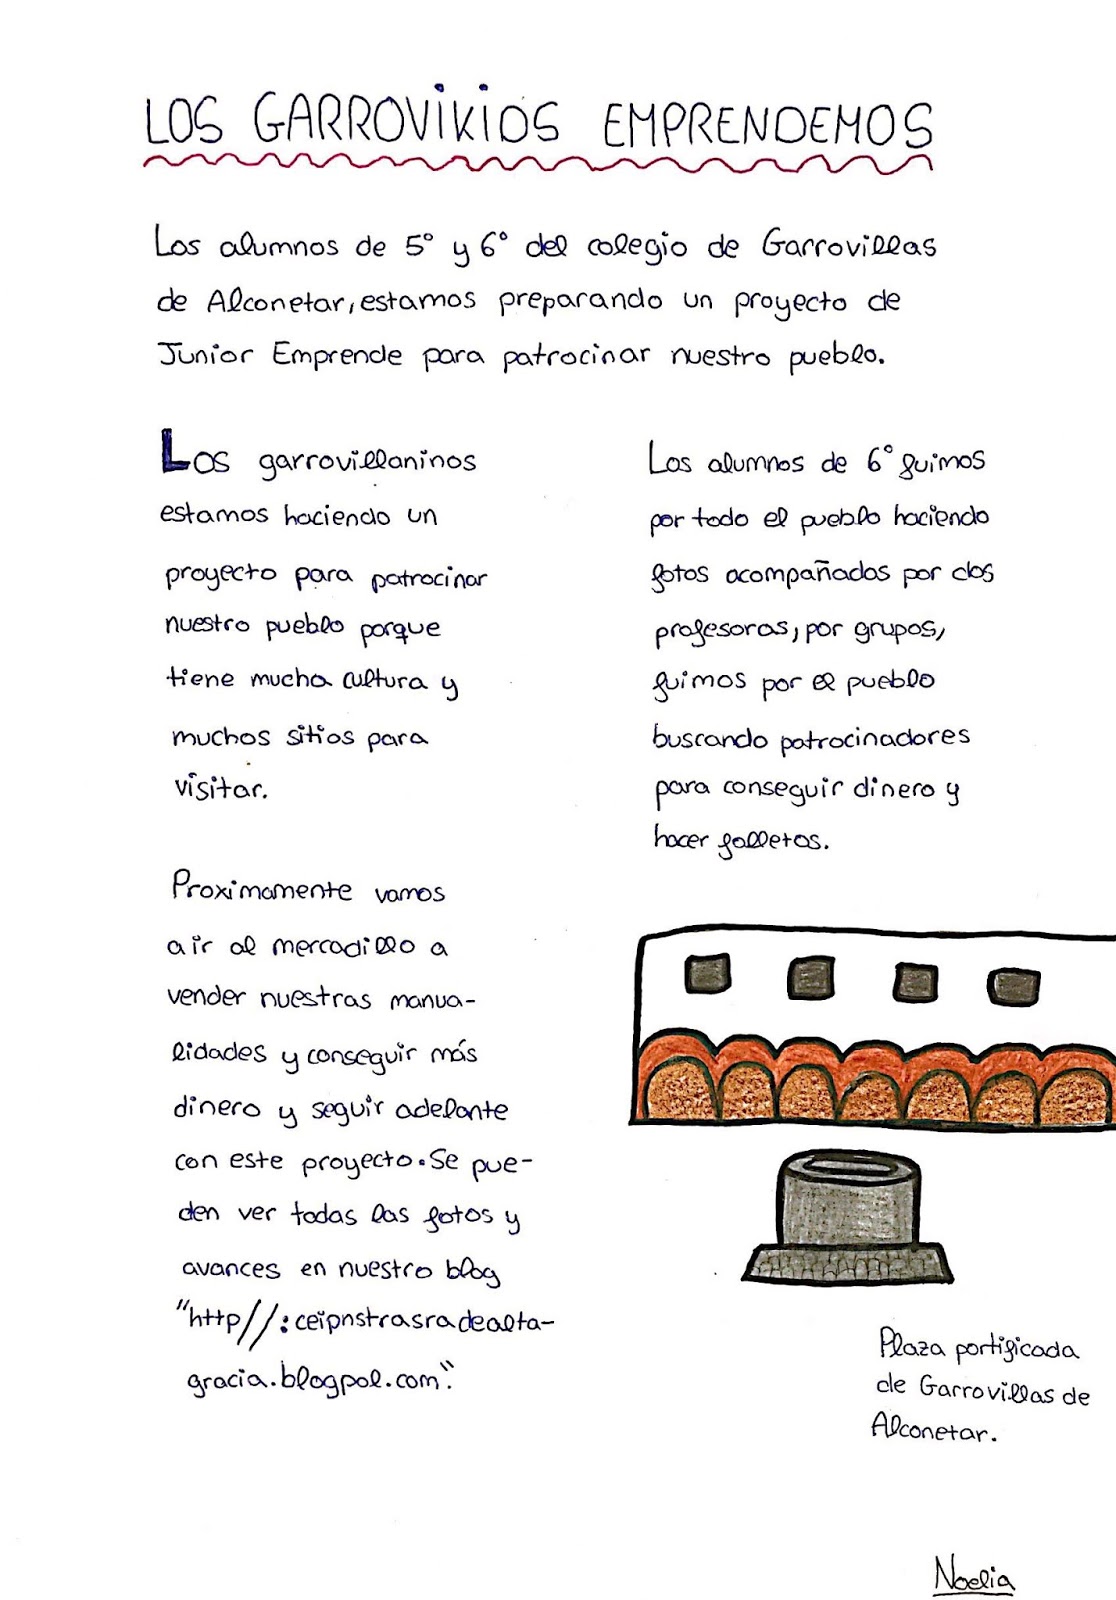 LOS GARROVIKIOS EMPRENDEMOS
Los alumnos de 5º y 6º del colegio de Garrovillas
de Alconetar, estamos preparando un proyecto de
Junior Emprende para patrocinar nuestro pueblo.
Los garrovillaninos
estamos haciendo un
proyecto para patrocinar
nuestro pueblo porque
tiene mucha cultura y
muchos sitios para
visitar.
Proximamente vamos
a ir al mercadillo a
vender nuestras manua-
lidades y conseguir más
dinero y seguir adelante
con este proyecto. Se pue-
den ver todas las fotos y
avances en nuestro blog
"http//:ceipnstrasradealta-
gracia.blogpol.com".
Los alumnos de 6º fuimos
por todo el pueblo haciendo
fotos acompañados por dos
profesoras, por grupos,
fuimos por el pueblo
buscando patrocinadores
para conseguir dinero y
hacer folletos.
Plaza portificada
de Garrovillas de
Alconetar.
Noelia